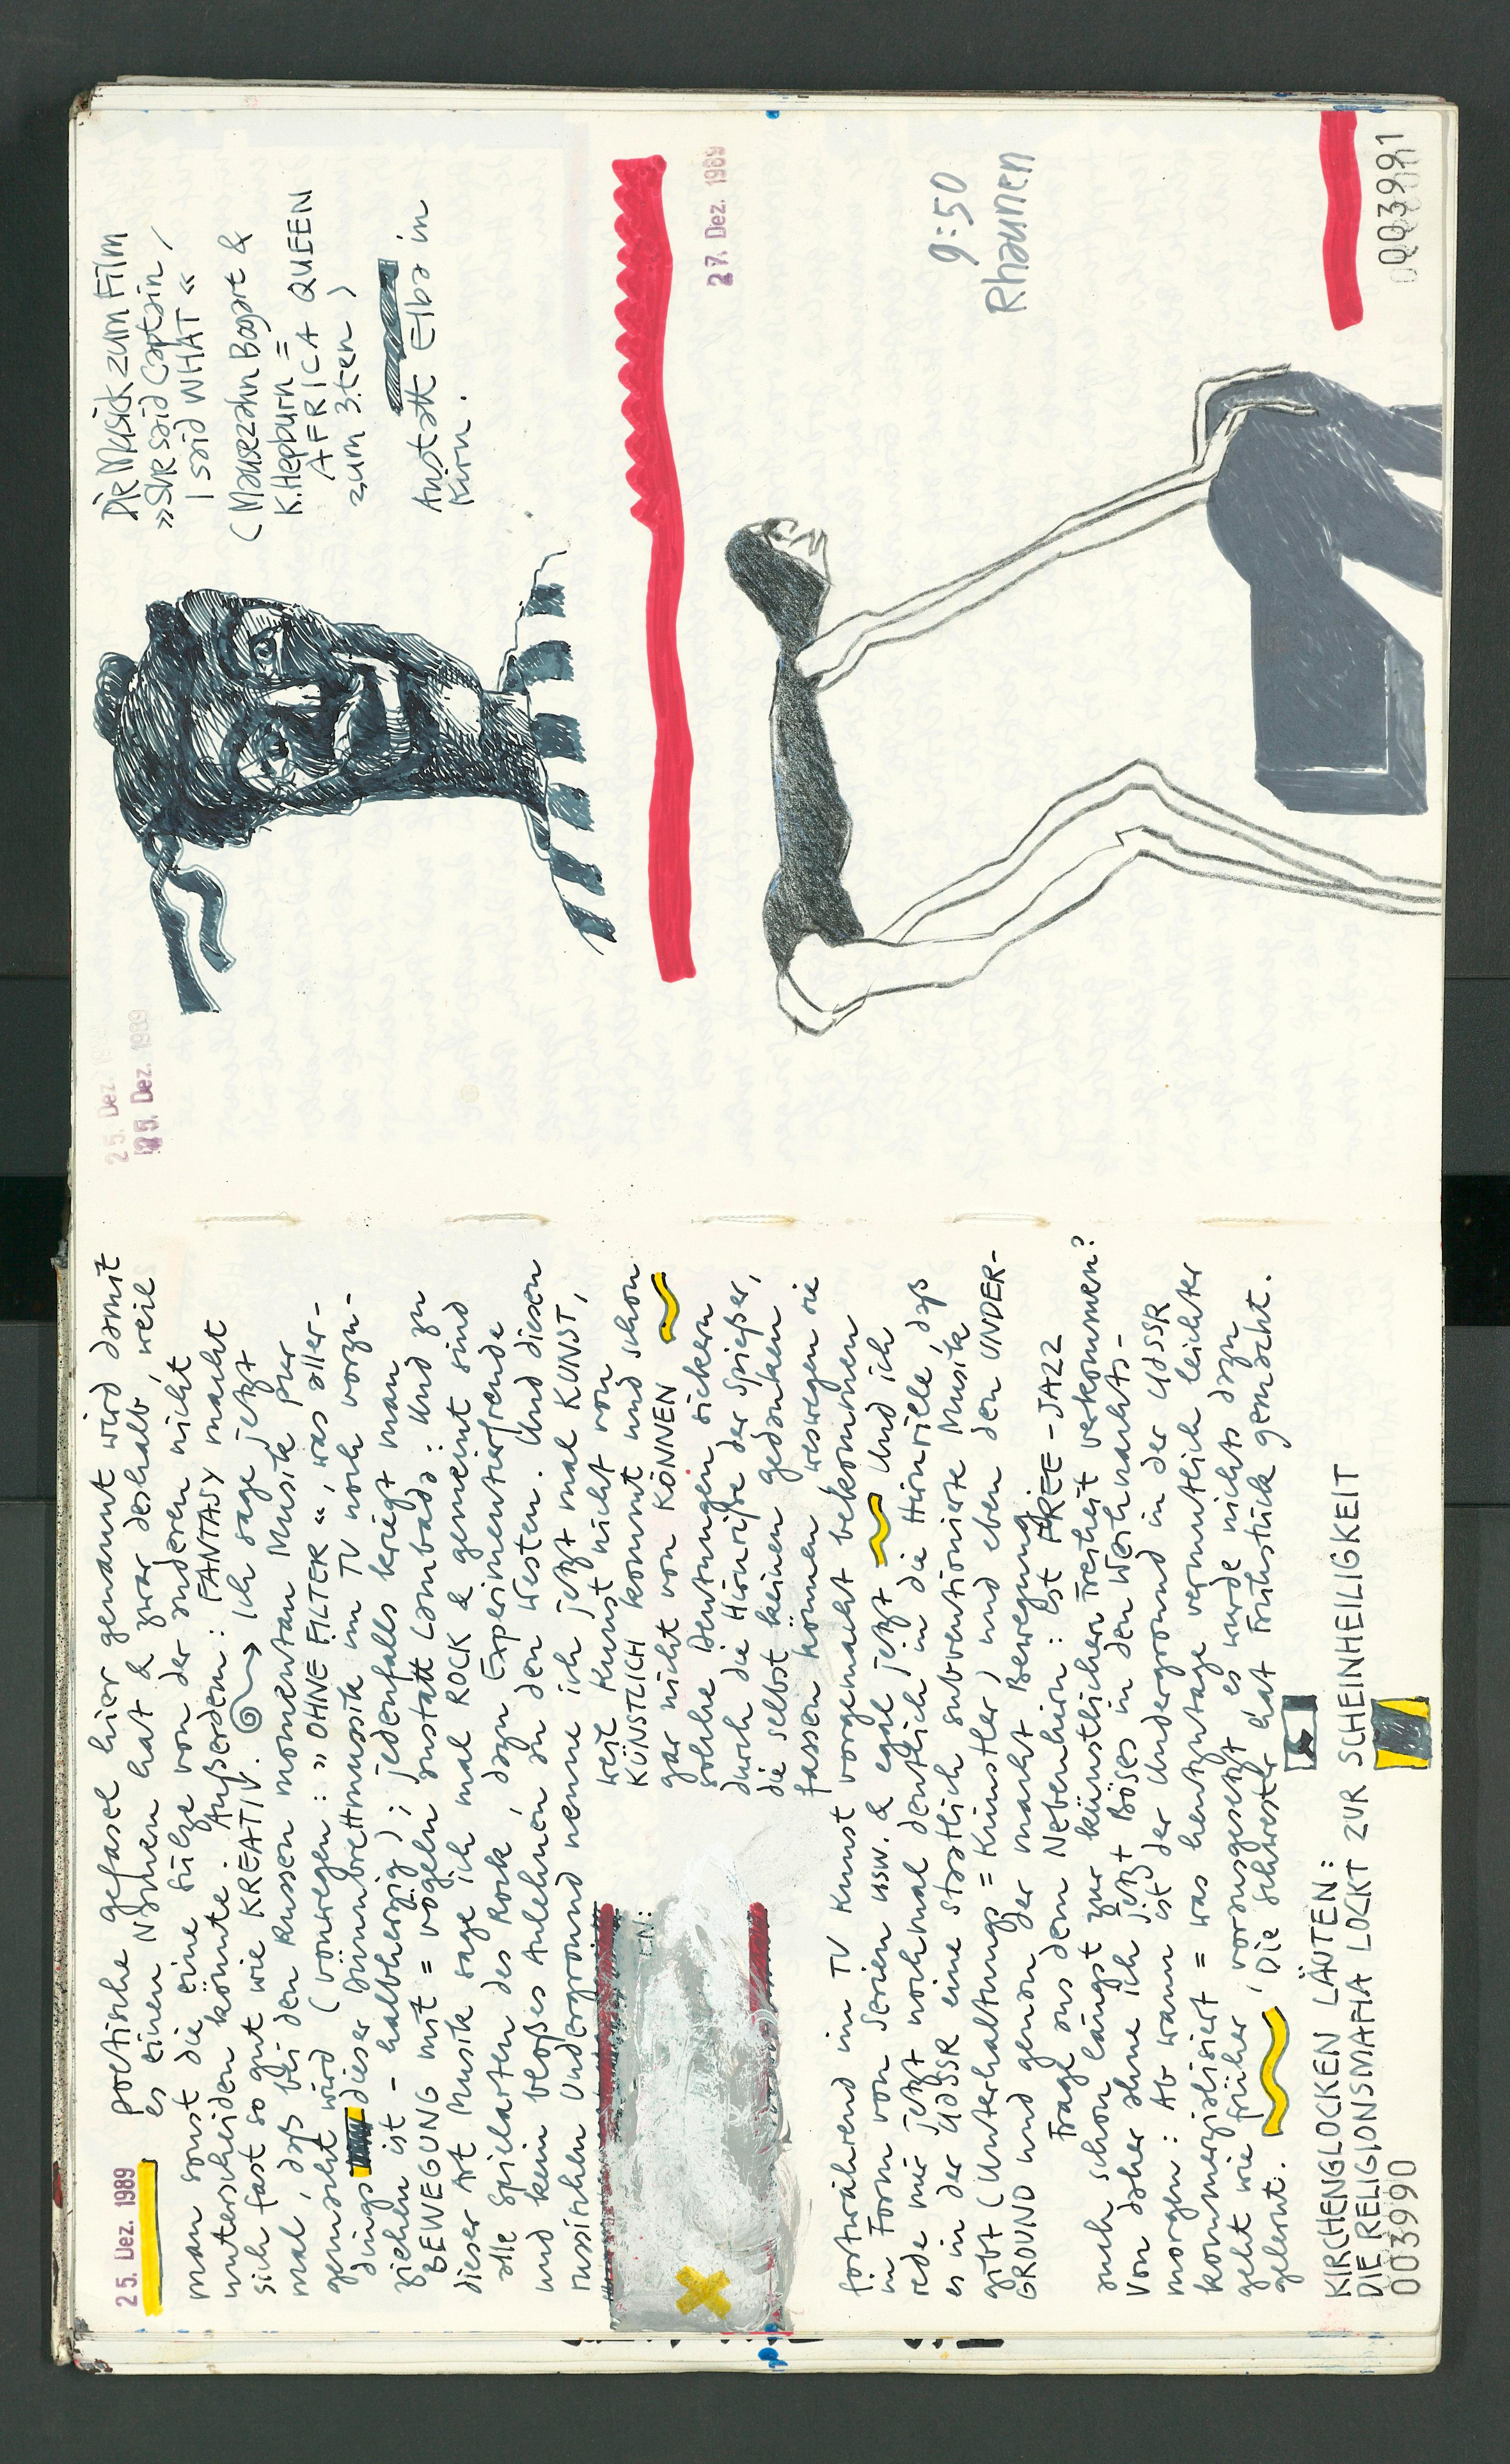 25. Dez. 1989
poetische gefasel hier genannt wird damit
es einen Namen hat & zwar deshalb, weil
man sonst die eine Sülze von der anderen nicht
unterscheiden könnte. Außerdem: FANTASY macht
sich fast so gut wie KREATIV. Ich sage jetzt
mal, daß bei den Russen momentan Musik pur
gemacht wird (vonwegen: »OHNE FILTER«, was aller-
dings dieser Dünnbrettmusik im TV noch vorzu-
ziehen ist - halbherzig); jedenfalls kriegt man
BEWEGUNG mit = vögeln anstatt Lambada: Und zu
dieser Art Musik sage ich mal ROCK & gemeint sind
alle Spielarten des Rock, dazu Experimentierfreude
und kein bloßes Anlehnen an den Westen. Und diesen
russischen Underground nenne ich jetzt mal KUNST,
weil Kunst nicht von
KÜNSTLICH kommt und schon
gar nicht von KÖNNEN
solche Deutungen sickern
durch die Hirnriße der Spießer,
die selbst keinen gedanken
fassen können weswegen sie
fortwährend im TV Kunst vorgemacht bekommen
in Form von Serien usw. & egal jetzt Und ich
rede mir jetzt nochmal deutlich in die Hirnrille, daß
es in der UdSSR eine staatlich subventionierte Musik
gibt (Unterhaltungs = Künstler) und eben den UNDER-
GROUND und genau der macht Bewegung.
Frage aus dem Nebenhirn: ist FREE-JAZZ
auch schon längst zur künstlichen Freiheit verkommen?
Von daher ahne ich jetzt Böses in den Weihnachts-
morgen: Ab wann ist der Underground in der UdSSR
kommerzialisiert = was heutzutage vermutlich leichter
geht wie früher, vorausgesetzt es wurde nichts dazu
gelernt. Die Schwester hat Frühstück gemacht.
KIRCHENGLOCKEN LÄUTEN:
DIE RELIGIONSMAFIA LOCKT ZUR SCHEINHEILIGKEIT
003990
25. Dez. 1989
25. Dez. 1989
Die Musick zum Film
»She said Captain,
I said WHAT«
(Mausezahn Bogart &
K. Hepburn =
AFRICA QUEEN
zum 3.ten)
Anstatt Elba in
Kirn.
27. Dez. 1989
9:50
Rhaunen
003991